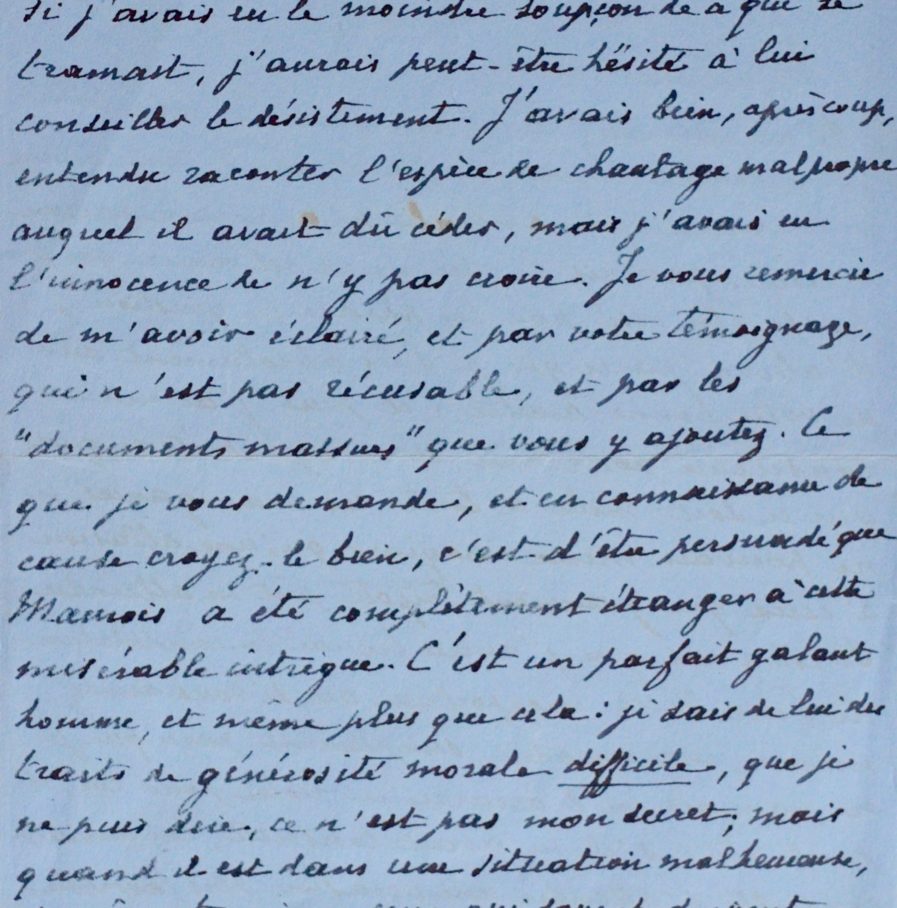 Si j'avais eu le moindre soupçon de ce que se
tramait, j'aurais peut-être hésité à lui
conseiller le désistement. J'avais bien, après coup,
entendu raconter l'espèce de chantage malpropre
auquel il avait dû céder, mais j'avais eu
l'innocence de n'y pas croire. Je vous remercie
de m'avoir éclairé, et par votre témoignage,
qui n'est pas récusable, et par les
"documents massues" que vous y ajoutez. Ce
que je vous demande, et en connaissance de
cause croyez-le bien, c'est d'être persuadé que
Maurois a été complètement étranger à cette
misérable intrigue. C'est un parfait galant
homme, et même plus que cela : je sais de lui des
traits de générosité morale difficile, que je
ne puis dire, ce n'est pas mon secret ; mais
quand il est dans une situation malheureuse,